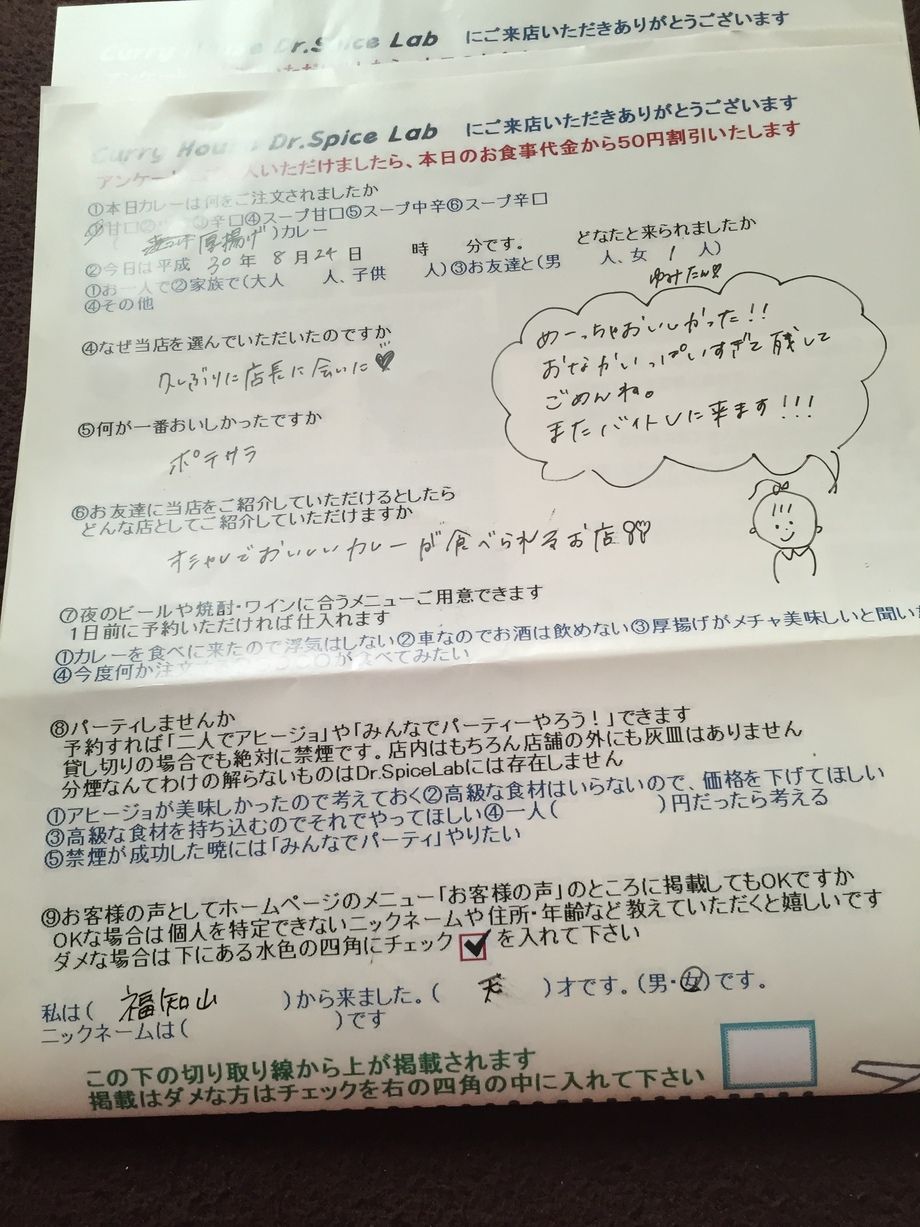 Dr.Spice Lab にご来店いただきありがとうございます
Curry House Dr.Spice Lab にご来店いただきありがとうございます
人いただけましたら、本日のお食事代金から50円割引いたします
①本日カレーは何をご注文されましたか
①甘口 ③辛口④スープ甘口⑤スープ中辛⑥スープ辛口
( 厚揚げ )カレー
②今日は平成 30 年 8 月 24 日 時 分です。 どなたと来られましたか
①お一人で②家族で(大人 人、子供 人)③お友達と(男 人、女 1 人)
④その他
ゆみたん
④なぜ当店を選んでいただいたのですか
久しぶりに店長に会いに♥
めーっちゃおいしかった!!
おなかいっぱいすぎて残して
ごめんね。
またバイトしに来ます!!!
⑤何が一番おいしかったですか
ポテサラ
⑥お友達に当店をご紹介していただけるとしたら
どんな店としてご紹介していただけますか
オシャレでおいしいカレーが食べられるお店
⑦夜のビールや焼酎・ワインに合うメニューご用意できます
1日前に予約いただければ仕入れます
①カレーを食べに来たので浮気はしない②車なのでお酒は飲めない③厚揚げがメチャ美味しいと聞い
④今度何か注文 が食べてみたい
⑧パーティしませんか
予約すれば「二人でアヒージョ」や「みんなでパーティーやろう!」できます
貸し切りの場合でも絶対に禁煙です。店内はもちろん店舗の外にも灰皿はありません
分煙なんてわけの解らないものはDr.SpiceLabには存在しません
①アヒージョが美味しかったので考えておく②高級な食材はいらないので、価格を下げてほしい
③高級な食材を持ち込むのでそれでやってほしい④一人( )円だったら考える
⑤禁煙が成功した暁には「みんなでパーティ」やりたい
⑨お客様の声としてホームページのメニュー「お客様の声」のところに掲載してもOKですか
OKな場合は個人を特定できないニックネームや住所・年齢など教えていただくと嬉しいです
ダメな場合は下にある水色の四角にチェック ✔ を入れて下さい
私は( 福知山 )から来ました。( )才です。(男・女)です。
ニックネームは( )です
この下の切り取り線から上が掲載されます
掲載はダメな方はチェックを右の四角の中に入れて下さい